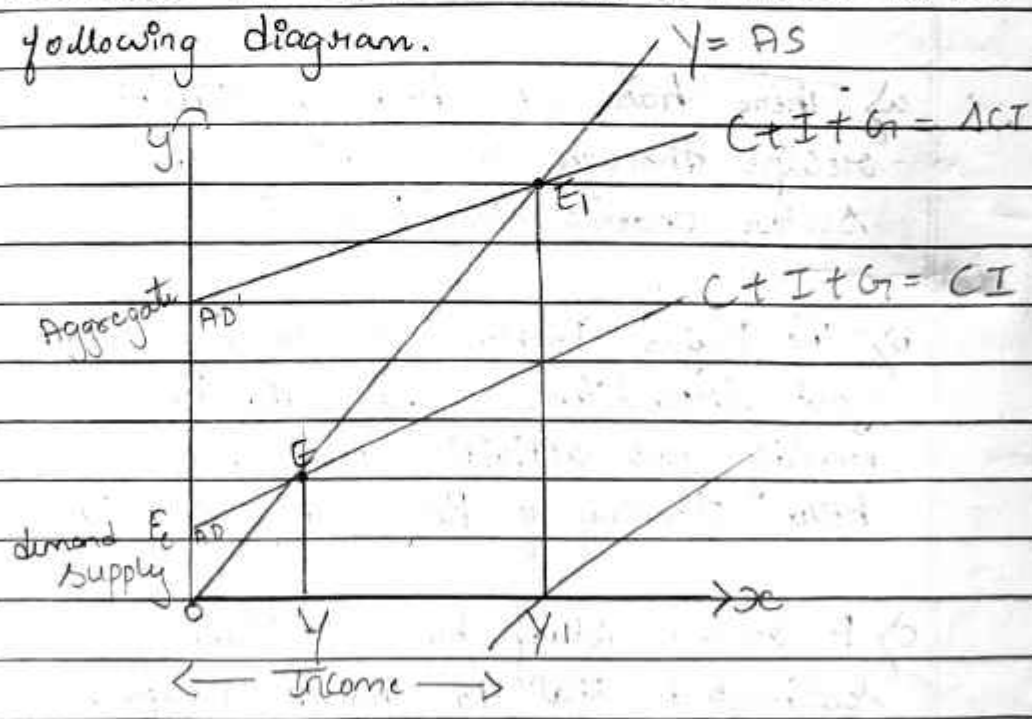 following diagram.
Y = AS
y
C + I + G = ΔCI
E1
Aggregate
AD'
C + I + G = CI
E
demand
AD
supply
O
Y
Y1
x
Income